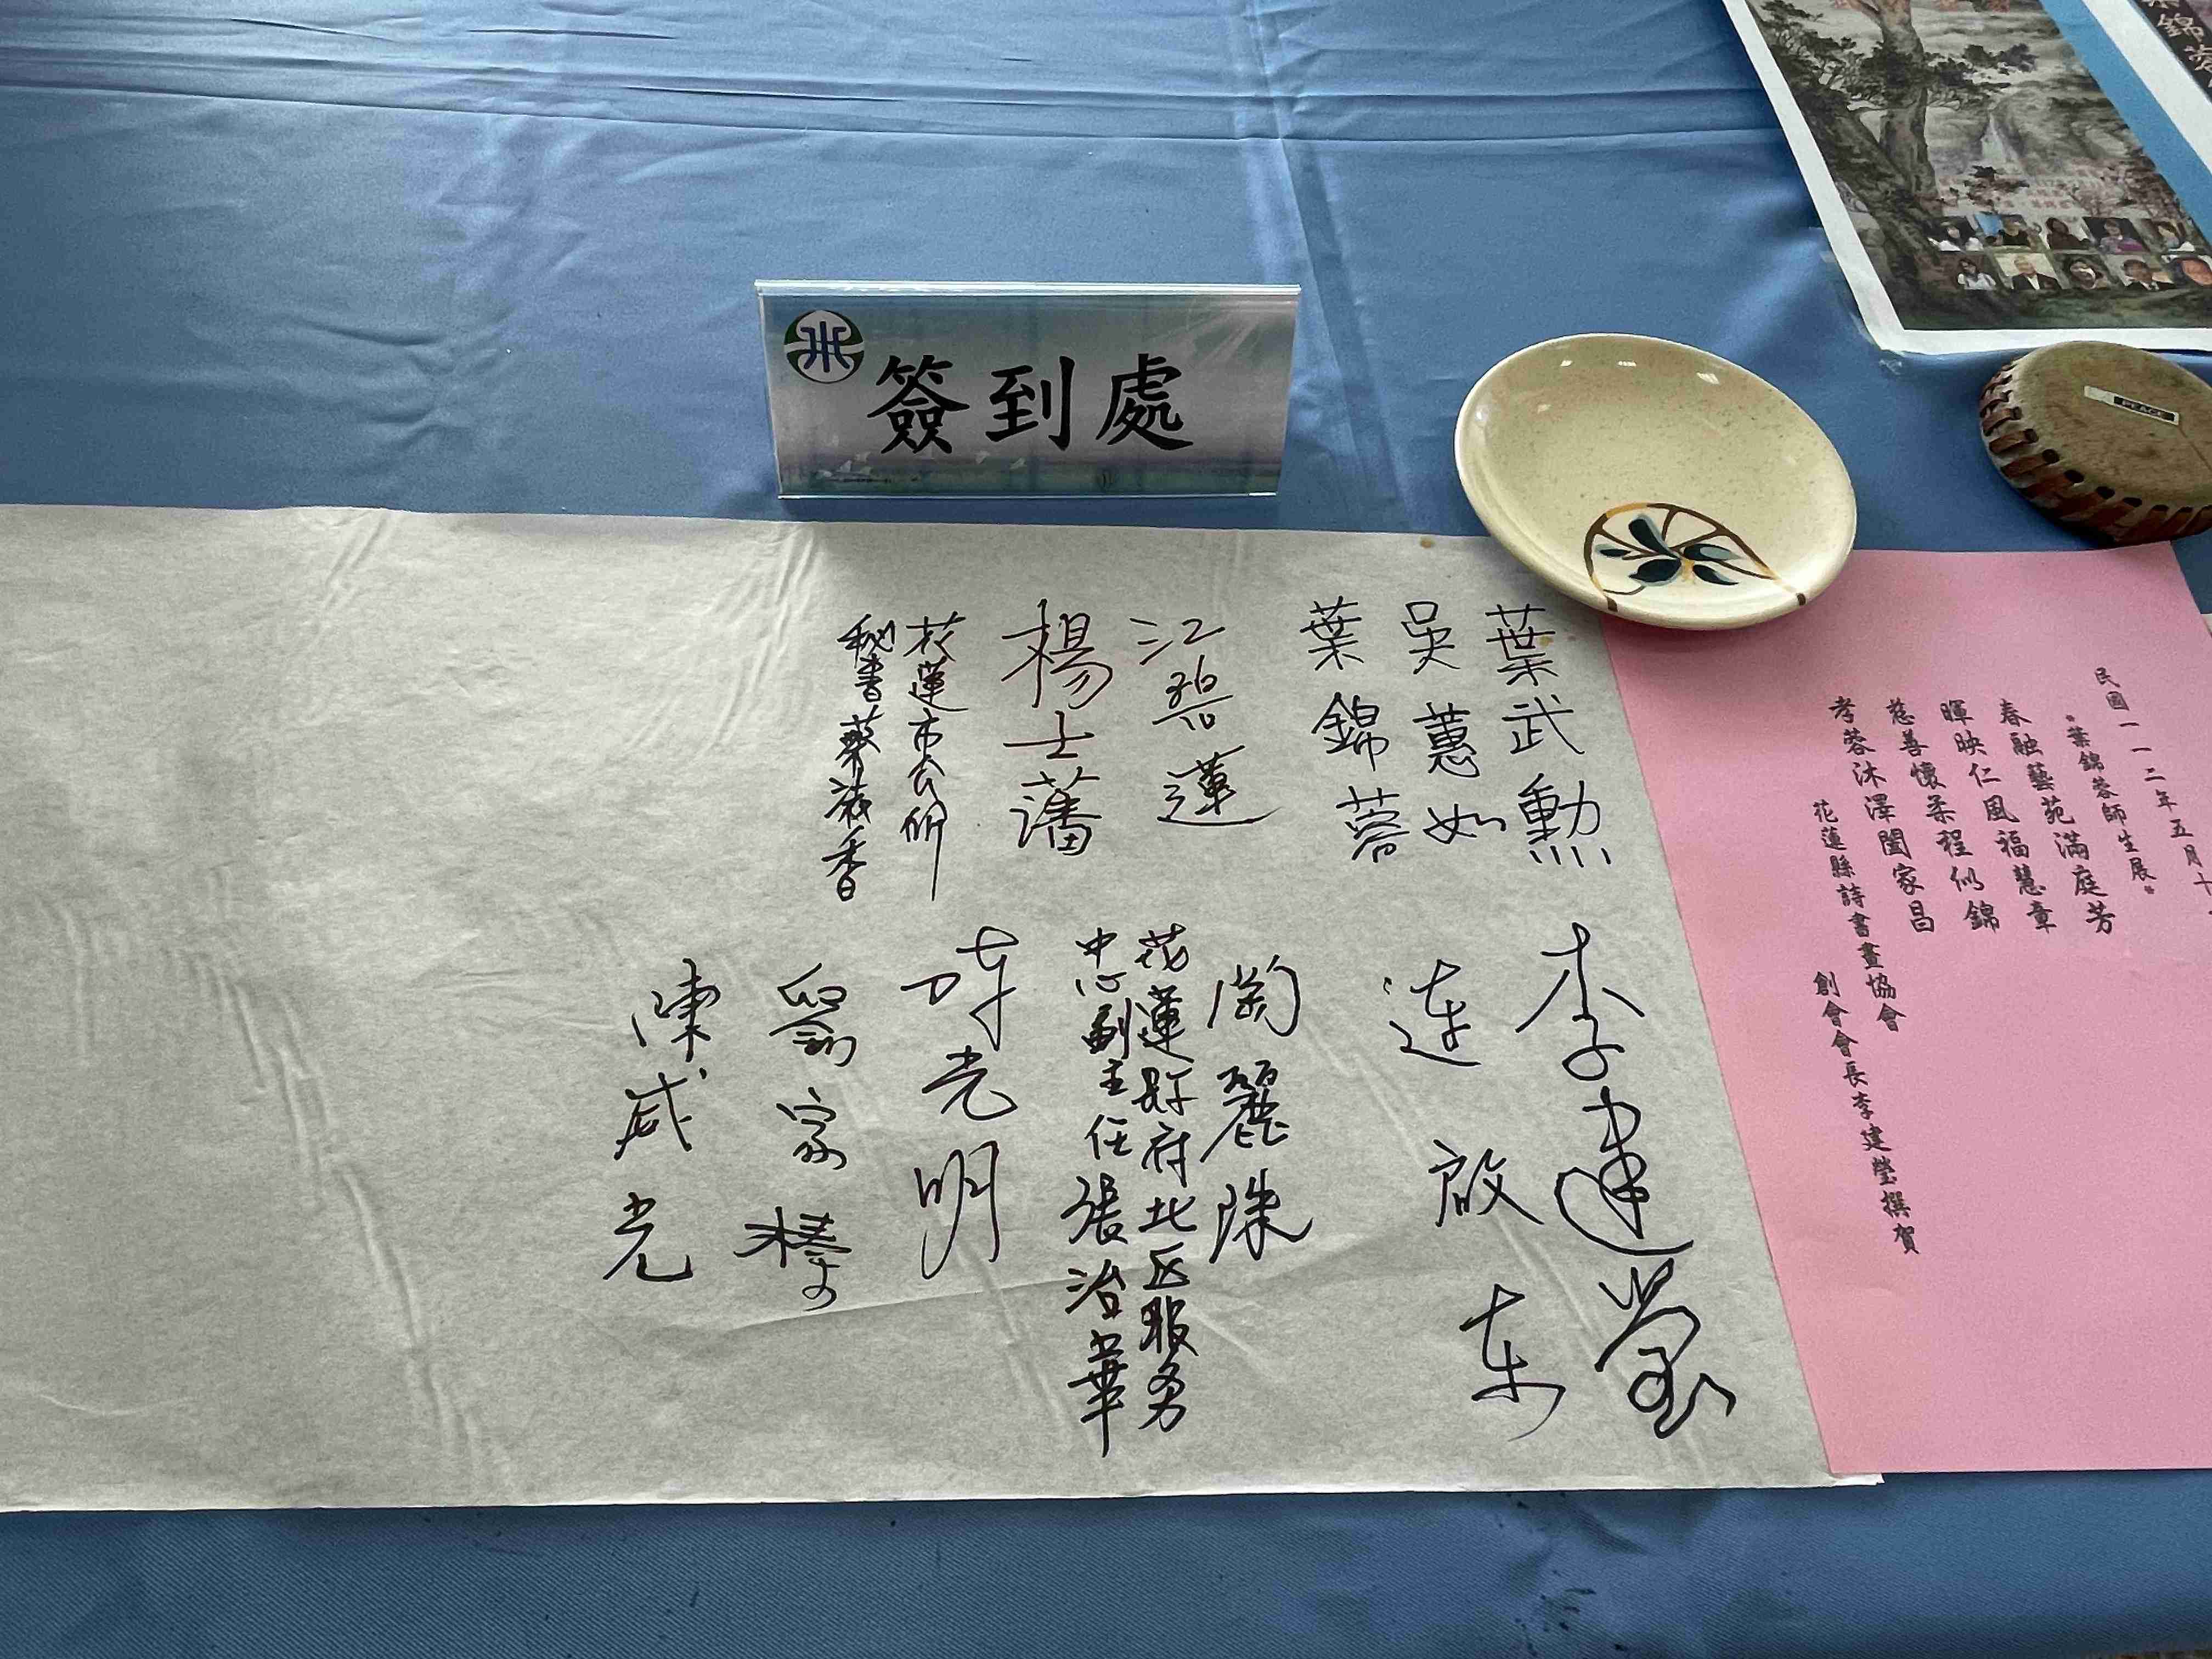 簽到處
民國一一二年五月十
"葉錦蓉師生展"
春融藝苑滿庭芳
暉映仁風福慧章
慈善懷柔程似錦
孝蓉沐澤闔家昌
花蓮縣詩書畫協會
創會會長李建瑩撰賀
PEACE
葉武勳
吳蕙如
葉錦蓉
江碧蓮
楊士藩
花蓮市公所
秘書蔡淑香
李建瑩
連啟东
陶麗珠
花蓮縣府北区服务
中心副主任張治華
陳光明
家榛
陳威光